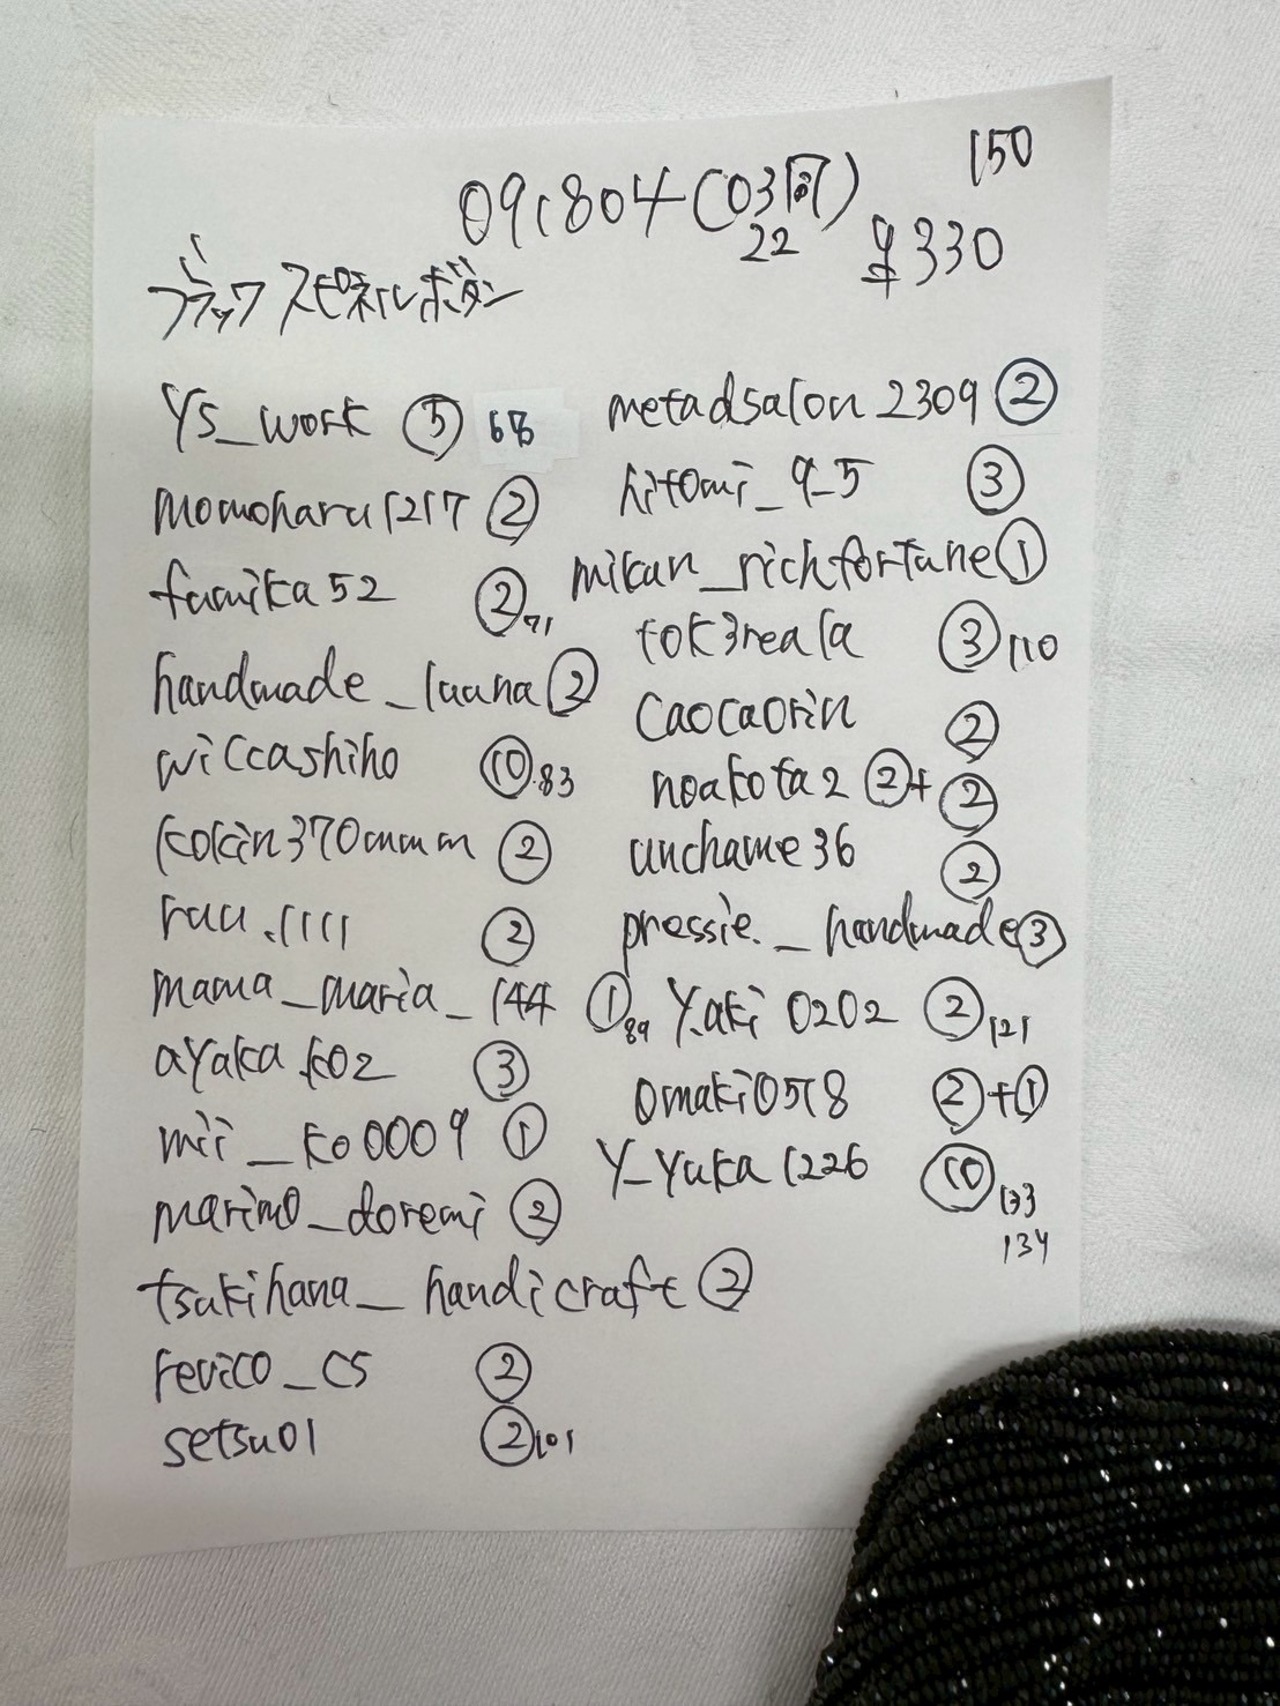 150
091804 (03同)
22
¥330
ブラックスピネルボタン
Ys_work ⑤ 68
momoharu1217 ②
fumika52 ② 71
handmade_luuna ②
wiccashiho ⑩ 83
kokin370mmm ②
ruu.1111 ②
mama_maria_144 ① 89
ayaka.k02 ③
mii_ko0009 ①
marimo_doremi ②
tsukihana_handicraft ②
revico_cs ②
setsu01 ② 101
metadsalon2309 ②
hitomi_9_5 ③
mikan_richfortune ①
tok3reala ③ 110
caocaorin ②
noakota2 ②+②
unchame36 ②
pressie._handmade ③
Y.aki0202 ② 121
omaki0518 ②+①
Y_Yuka1226 ⑩ 133
134